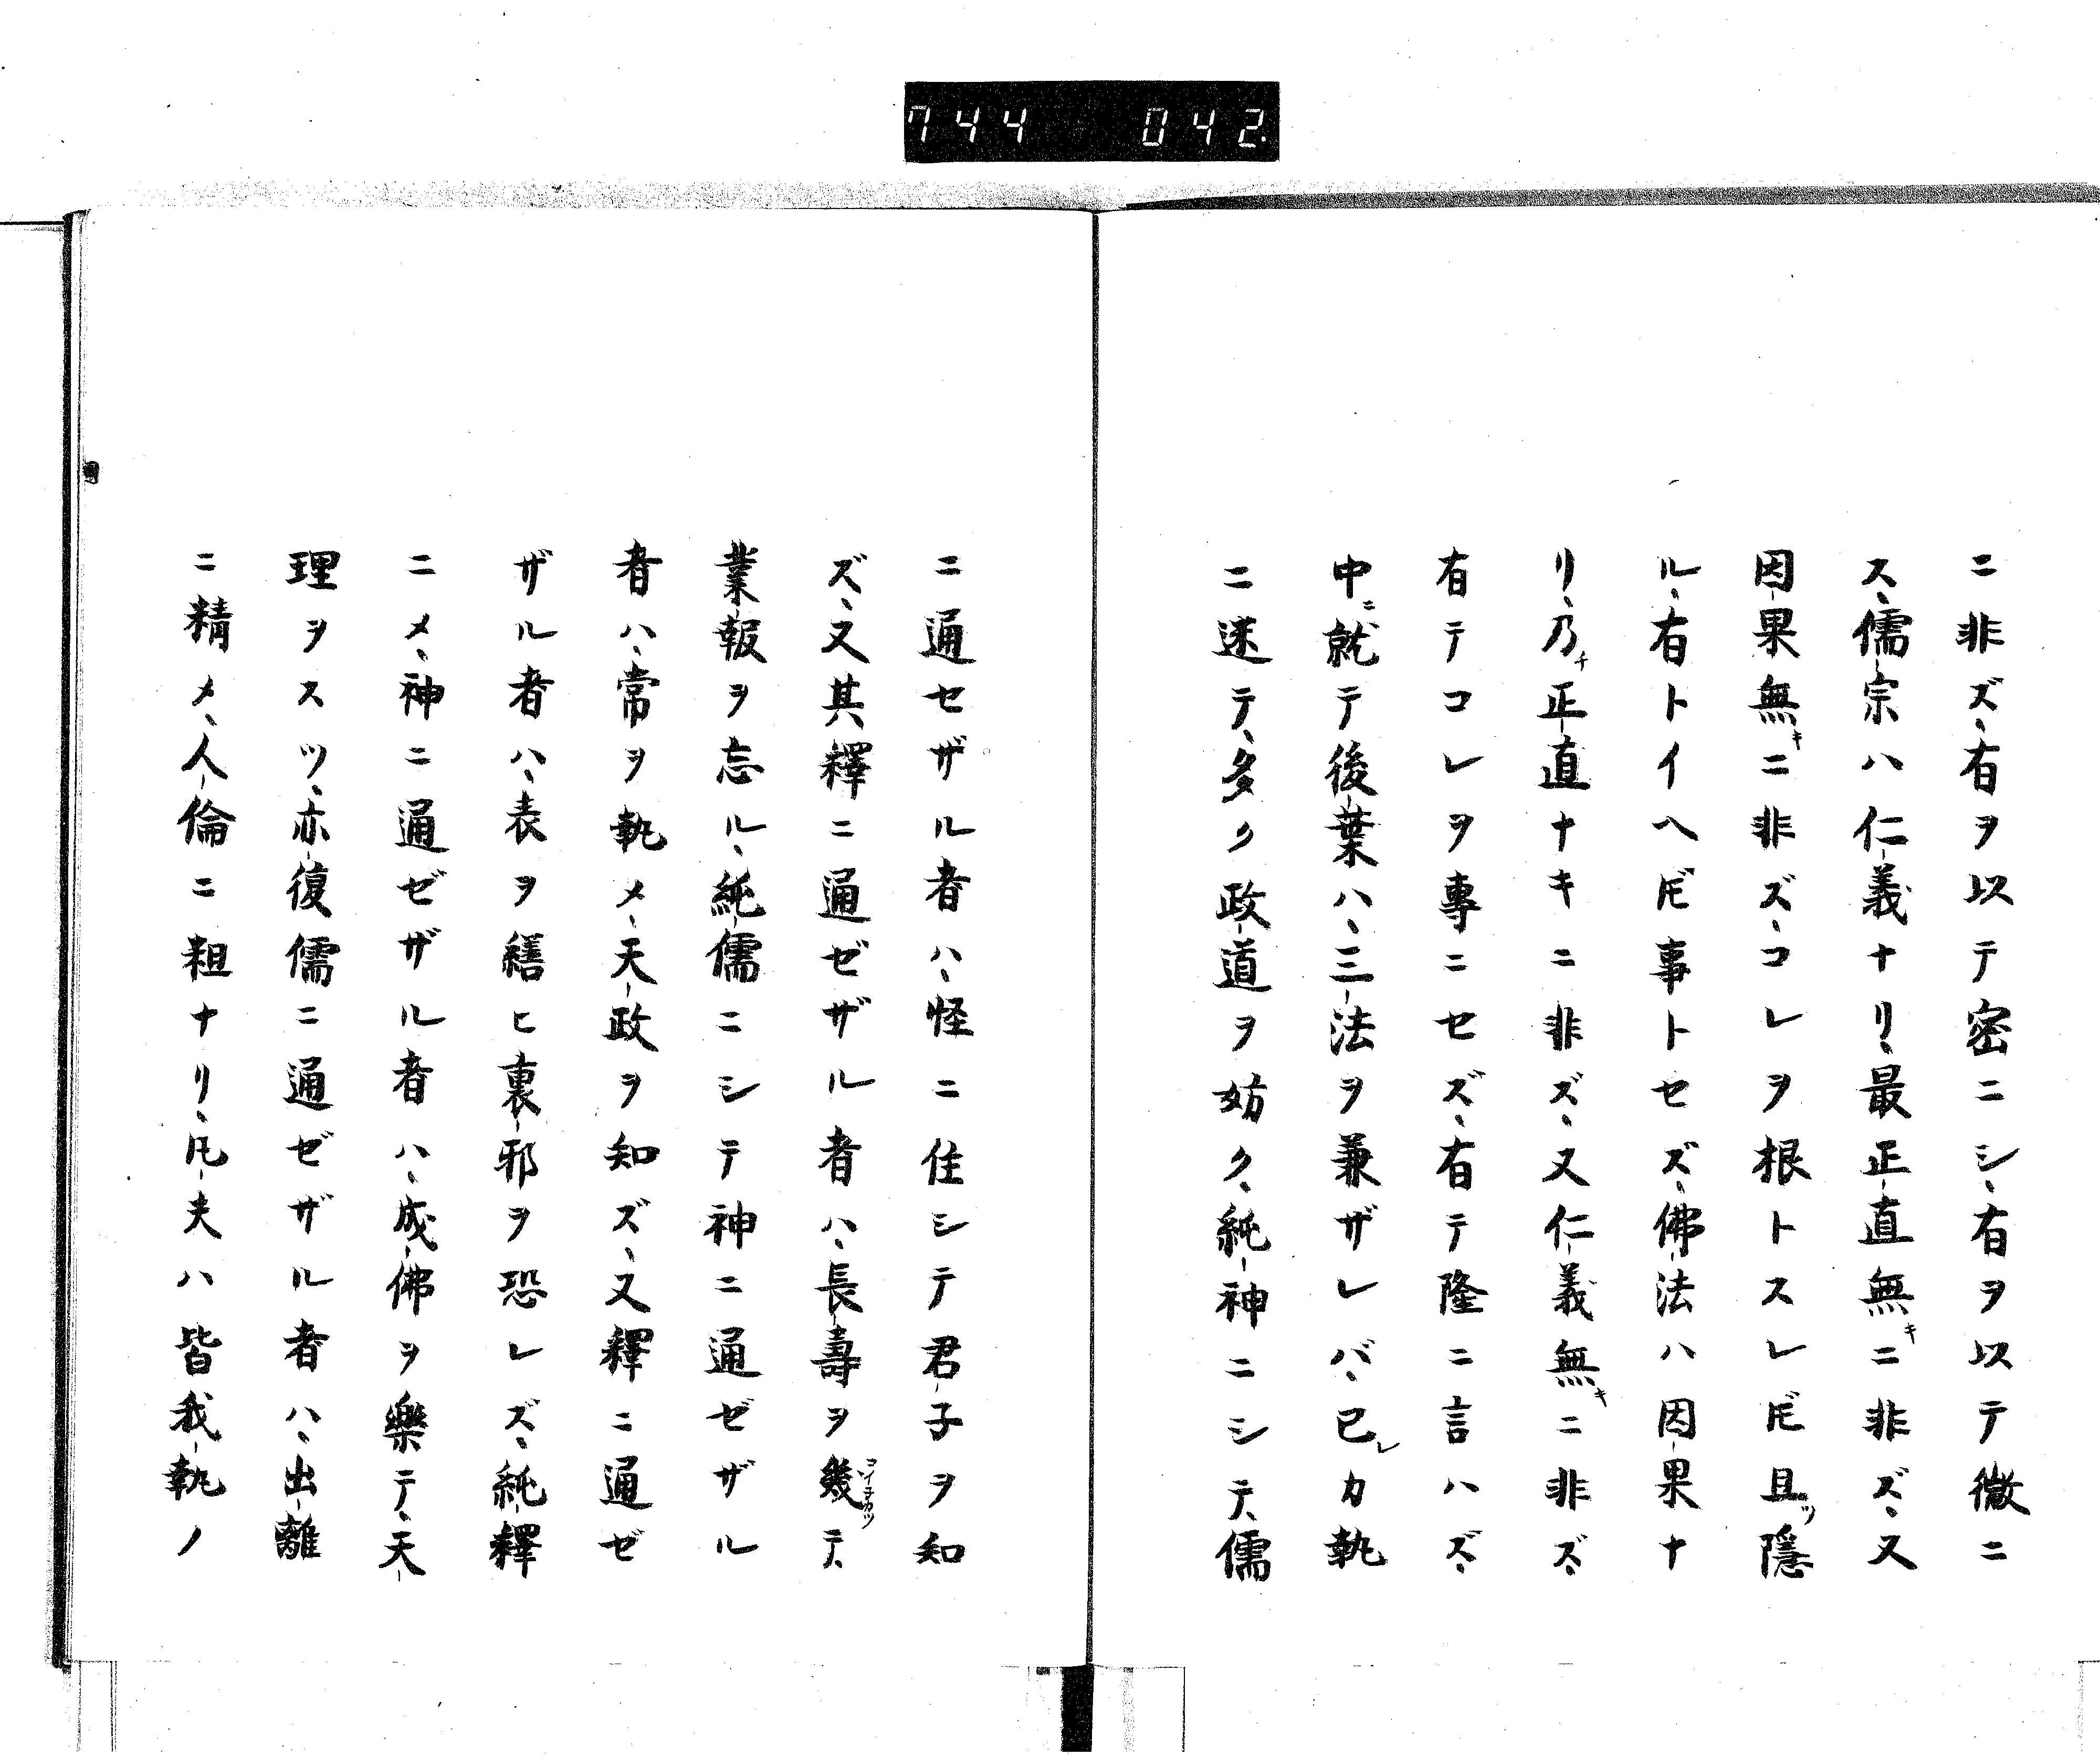 744 042
ニ非ズ、有ヲ以テ密ニシ、有ヲ以テ微ニ
ス、儒宗ハ仁義ナリ、最正直無キニ非ズ、又
因果無キニ非ズ、コレヲ根トスレ𪜈且ツ隱
ル、有トイヘ𪜈事トセズ、佛法ハ因果ナ
リ、乃チ正直ナキニ非ズ、又仁義無キニ非ズ、
有テコレヲ專ニセズ、有テ隆ニ言ハズ、
中ニ就テ後葉ハ、三法ヲ兼ザレバ、已レカ執
ニ迷テ、多ク政道ヲ妨ク、純神ニシテ、儒
ニ通セザル者ハ、怪ニ住シテ君子ヲ知
ズ、又其釋ニ通ゼザル者ハ、長壽ヲ幾テ、
業報ヲ忘ル、純儒ニシテ神ニ通ゼザル
者ハ、常ヲ執メ、天政ヲ知ズ、又釋ニ通ゼ
ザル者ハ、表ヲ繕ヒ裏邪ヲ恐レズ、純釋
ニメ、神ニ通ゼザル者ハ、成佛ヲ樂テ、天
理ヲスツ、亦復儒ニ通ゼザル者ハ、出離
ニ精メ、人倫ニ粗ナリ、凡夫ハ皆我執ノ